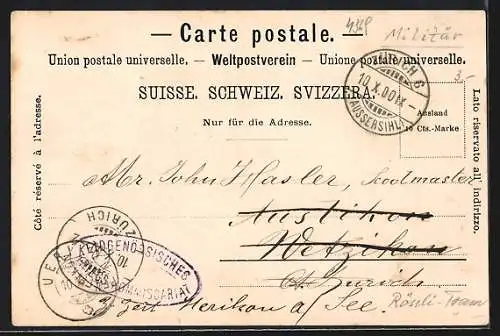 4369
Militär
— Carte postale. —
Union postale universelle. — Weltpostverein — Unione postale universelle.
SUISSE. SCHWEIZ. SVIZZERA.
Nur für die Adresse.
Côté réservé à l'adresse.
Lato riservato all' indirizzo.
3.-
Ausland
10 Cts.-Marke
ZÜRICH 6
10 X.00 IX –
(AUSSERSIHL)
Mr. John Hasler,
Austikon
Wetzikon
Ct. Zürich
z. Zeit Herikon a/ See.
Rösli-Tram
ZÜRICH
EIDGENÖSSISCHES
KOMMISSARIAT